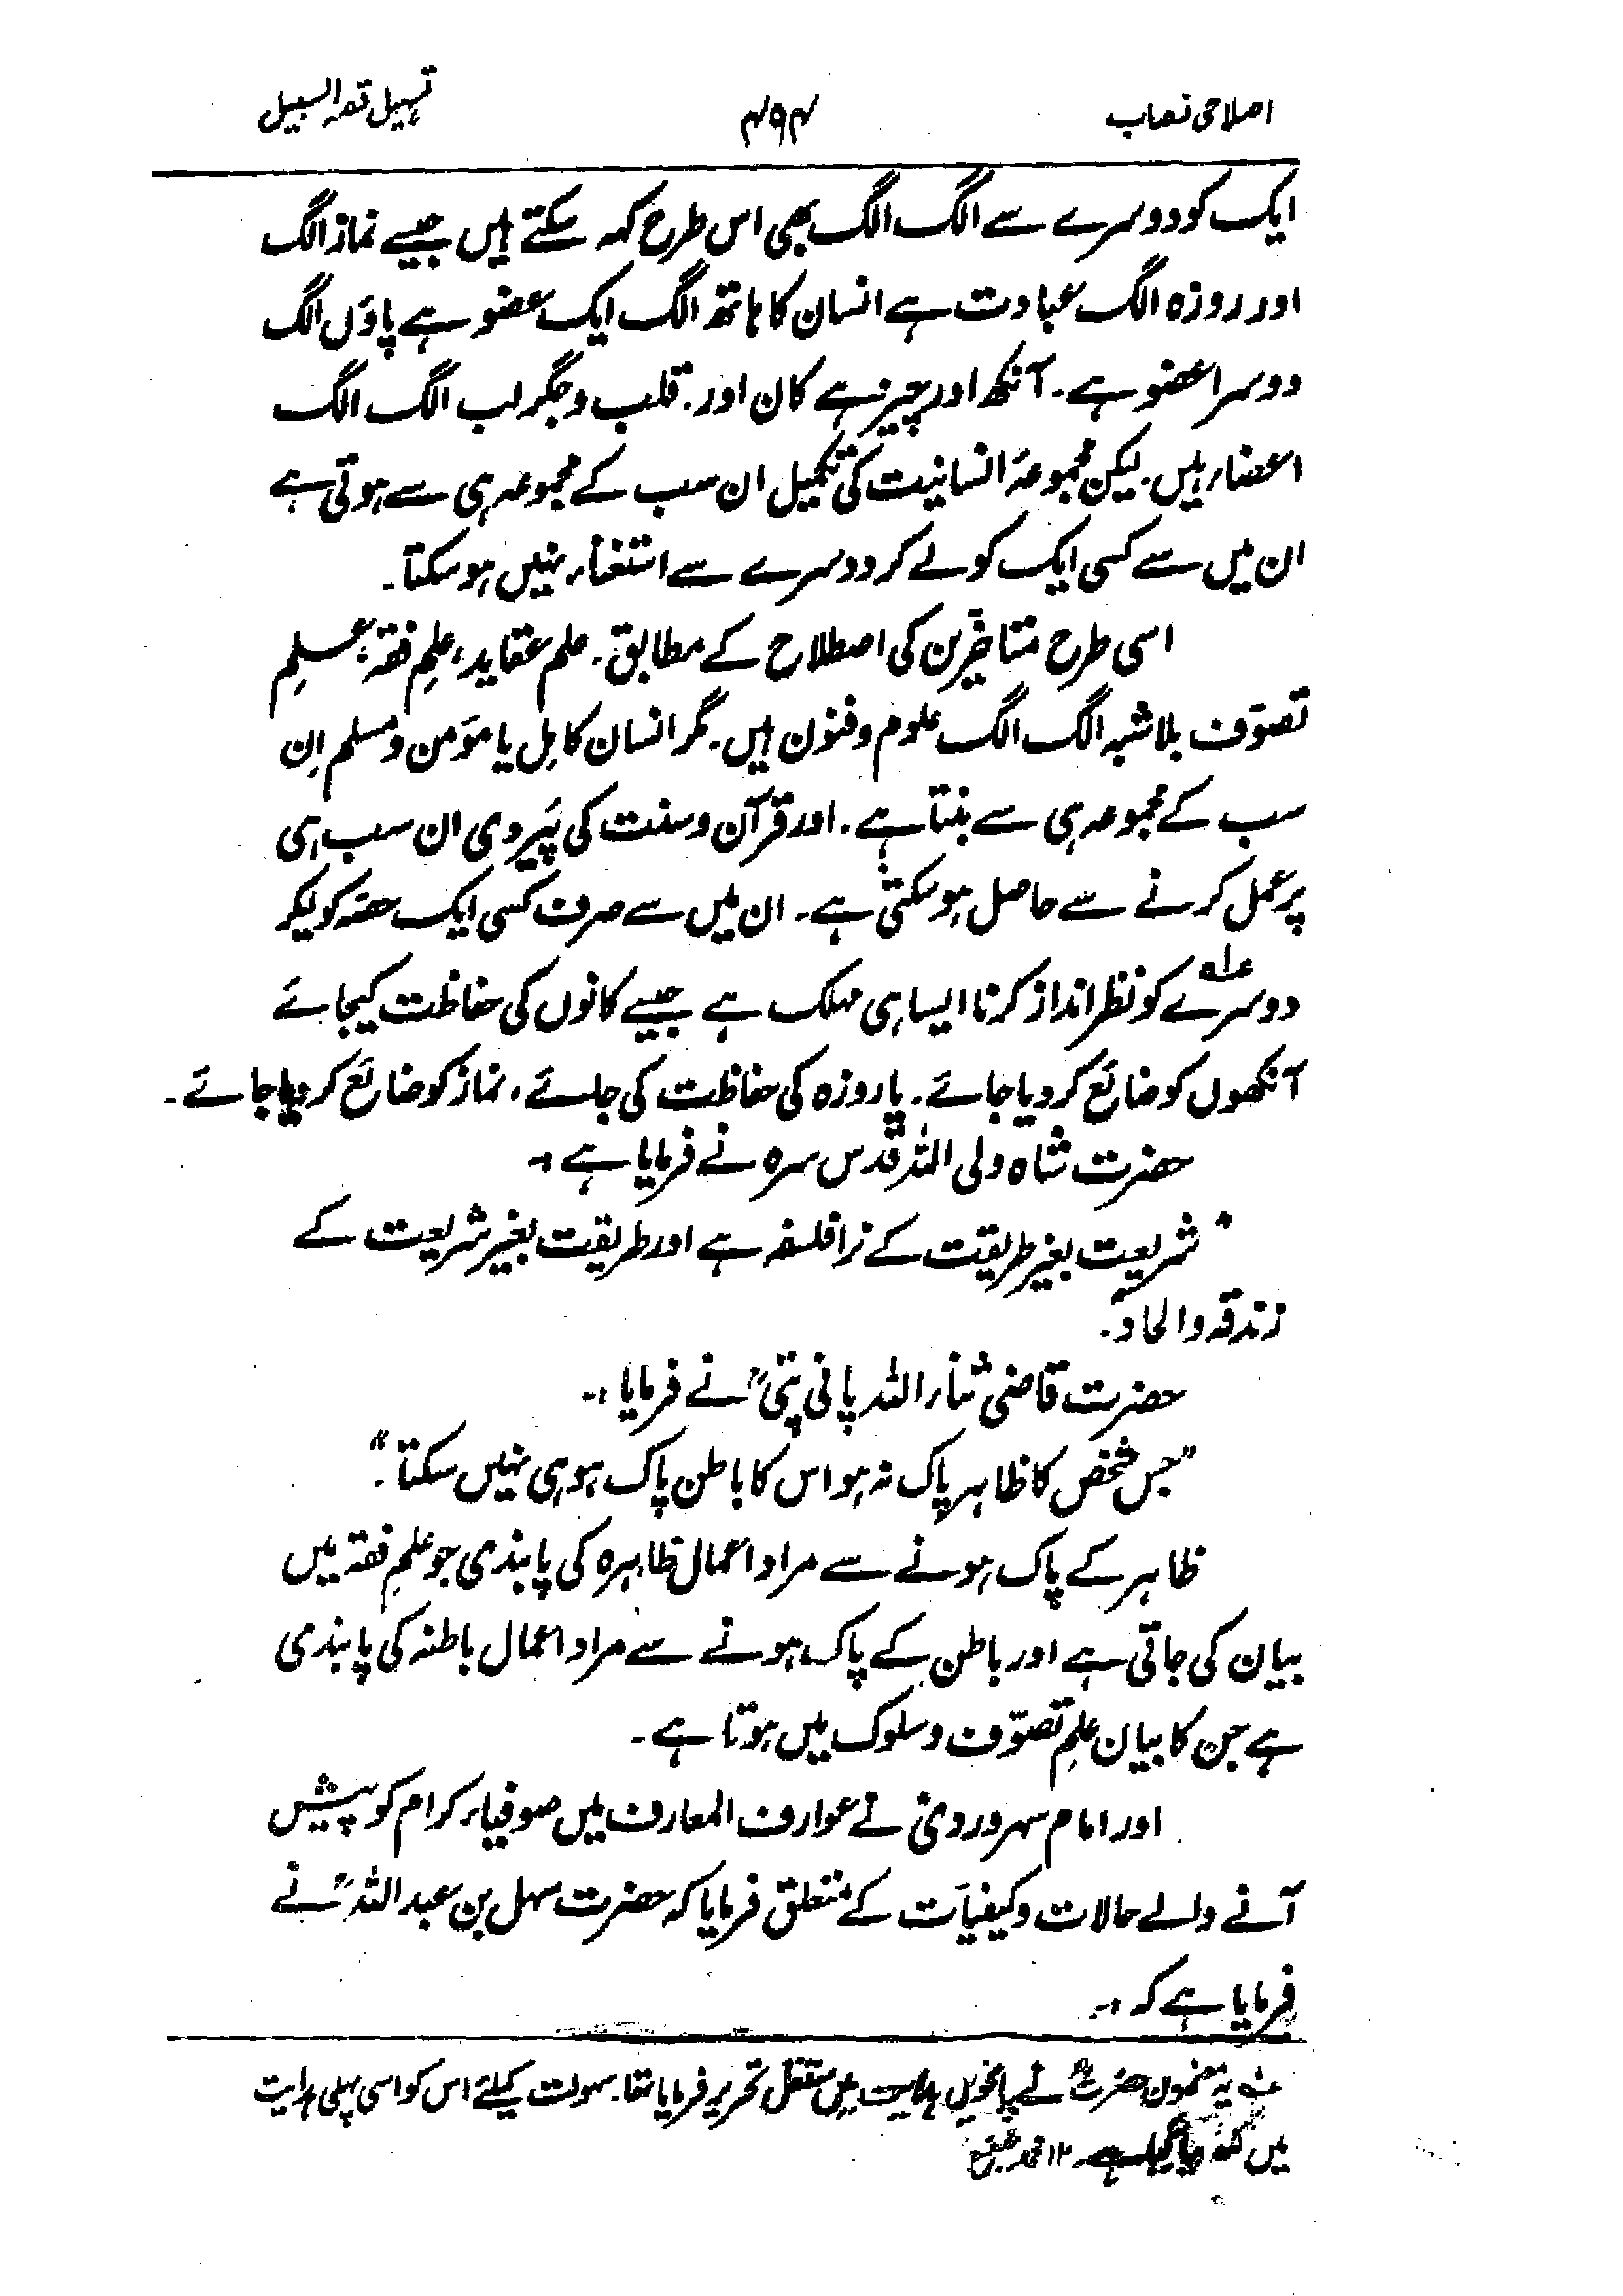 اصلاحی نصاب
۴۹۴
تسہیل قصد السبیل
ایک کو دوسرے سے الگ الگ بھی اس طرح کہہ سکتے ہیں جیسے نماز الگ
اور روزہ الگ عبادت ہے انسان کا ہاتھ الگ ایک عضو ہے پاؤں الگ
دوسرا عضو ہے۔ آنکھ اور چیز ہے کان اور۔ قلب و جگر لب الگ الگ
اعضاء ہیں۔ لیکن مجموعۂ انسانیت کی تکمیل ان سب کے مجموعہ ہی سے ہوتی ہے
ان میں سے کسی ایک کو لے کر دوسرے سے استغناء نہیں ہو سکتا۔
اسی طرح متاخّرین کی اصطلاح کے مطابق۔ علم عقاید، علمِ فقہ، علمِ
تصوّف بلا شبہ الگ الگ علوم و فنون ہیں۔ مگر انسان کامِل یا مؤمن و مسلم اِن
سب کے مجموعہ ہی سے بنتا ہے۔ اور قرآن و سنت کی پَیروی ان سب ہی
پر عمل کرنے سے حاصل ہو سکتی ہے۔ ان میں سے صرف کسی ایک حصّہ کو لیکر
دوسرے ؎۱ کو نظر انداز کرنا ایسا ہی مہلک ہے جیسے کانوں کی حفاظت کیجائے
آنکھوں کو ضائع کر دیا جائے۔ یا روزہ کی حفاظت کی جائے، نماز کو ضائع کر دیا جائے۔
حضرت شاہ ولی اللہ قدس سرہ نے فرمایا ہے :۔
"شریعت بغیر طریقت کے نرا فلسفہ ہے اور طریقت بغیر شریعت کے
زندقہ و الحاد"۔
حضرت قاضی ثناء اللہ پانی پتیؒ نے فرمایا :۔
"جس شخص کا ظاہر پاک نہ ہو اس کا باطن پاک ہو ہی نہیں سکتا"۔
ظاہر کے پاک ہونے سے مراد اعمال ظاہرہ کی پابندی جو علمِ فقہ میں
بیان کی جاتی ہے اور باطن کے پاک ہونے سے مراد اعمال باطنہ کی پابندی
ہے جن کا بیان علمِ تصوّف و سلوک میں ہوتا ہے۔
اور امام سہروردیؒ نے عوارف المعارف میں صوفیاء کرام کو پیش
آنے والے حالات و کیفیات کے متعلق فرمایا کہ حضرت سہل بن عبد اللہؒ نے
فرمایا ہے کہ :۔
؎۱ یہ مضمون حضرتؒ نے پانچویں ہدایت میں مستقل تحریر فرمایا تھا۔ سہولت کیلئے اس کو اسی پہلی ہدایت
میں لکھ دیا گیا ہے۔ ۱۲ محمد شفیع